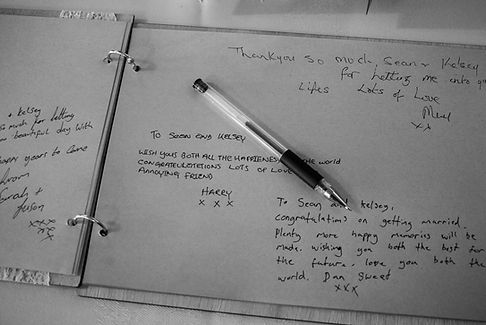 + Kelsey
so much for letting
beautiful day with
years to come
Sarah +
xxx
Thankyou so much, Sean + Kelsey
for letting me into your
Lifes Lots of Love
xx
To SEAN and KELSEY
WISH YOUS BOTH ALL THE HAPPIENES THE world
CONGRATULETETIONS LOTS OF LOVE
ANNOYING FRIEND
HARRY
x x x
To Sean and Kelsey,
congratulations on getting married.
Plenty more happy memories will be
made. wishing you both the best for
the future. love you both the
world. Dan Sweet
xxx